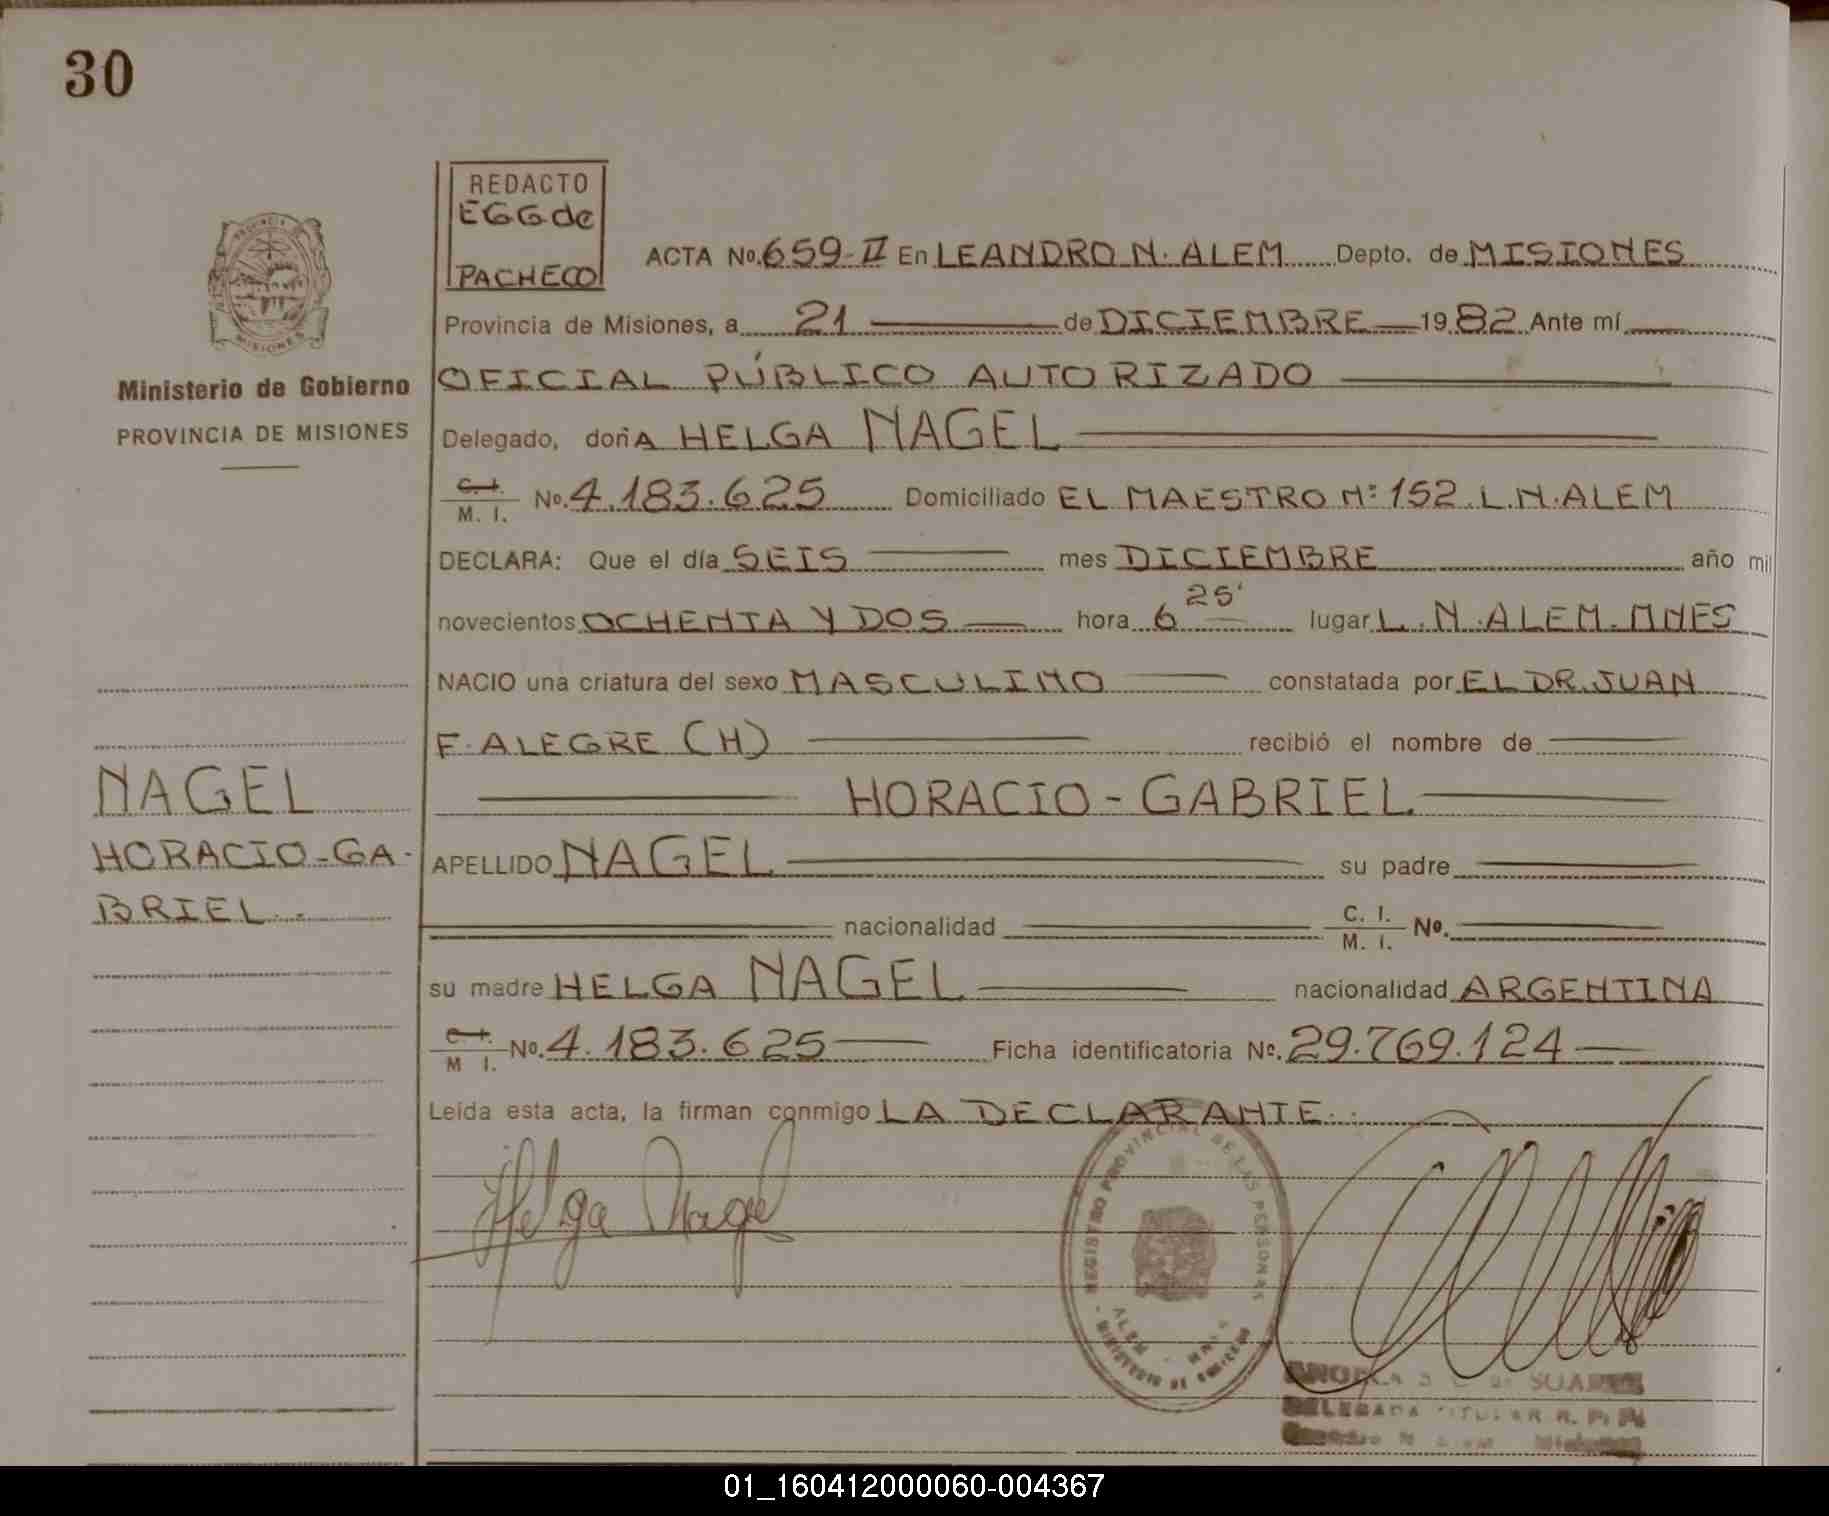 30
REDACTO
EGG de
PACHECO
ACTA No. 659-II En LEANDRO N. ALEM Depto. de MISIONES
Provincia de Misiones, a 21 de DICIEMBRE 1982 Ante mí
OFICIAL PÚBLICO AUTORIZADO
Ministerio de Gobierno
PROVINCIA DE MISIONES
Delegado, doñA HELGA NAGEL
C. I. M. I. No. 4.183.625 Domiciliado EL MAESTRO Nº 152. L.N. ALEM
DECLARA: Que el día SEIS mes DICIEMBRE año mil
novecientos OCHENTA Y DOS hora 6 25' lugar L. N. ALEM. MNES
NACIO una criatura del sexo MASCULINO constatada por EL DR. JUAN
F. ALEGRE (H) recibió el nombre de
HORACIO - GABRIEL
NAGEL
HORACIO-GA-
BRIEL..
APELLIDO NAGEL su padre
nacionalidad C. I. M. I. No.
su madre HELGA NAGEL nacionalidad ARGENTINA
C. I. M I. No. 4.183.625 Ficha identificatoria No. 29.769.124
Leída esta acta, la firman conmigo LA DECLARANTE..
Helga Nagel
REGISTRO PROVINCIAL DE LAS PERSONAS
ALEM - MNES
MINISTERIO DE GOBIERNO
SUAREZ
DELEGADA TITULAR R. P. P.
01_160412000060-004367